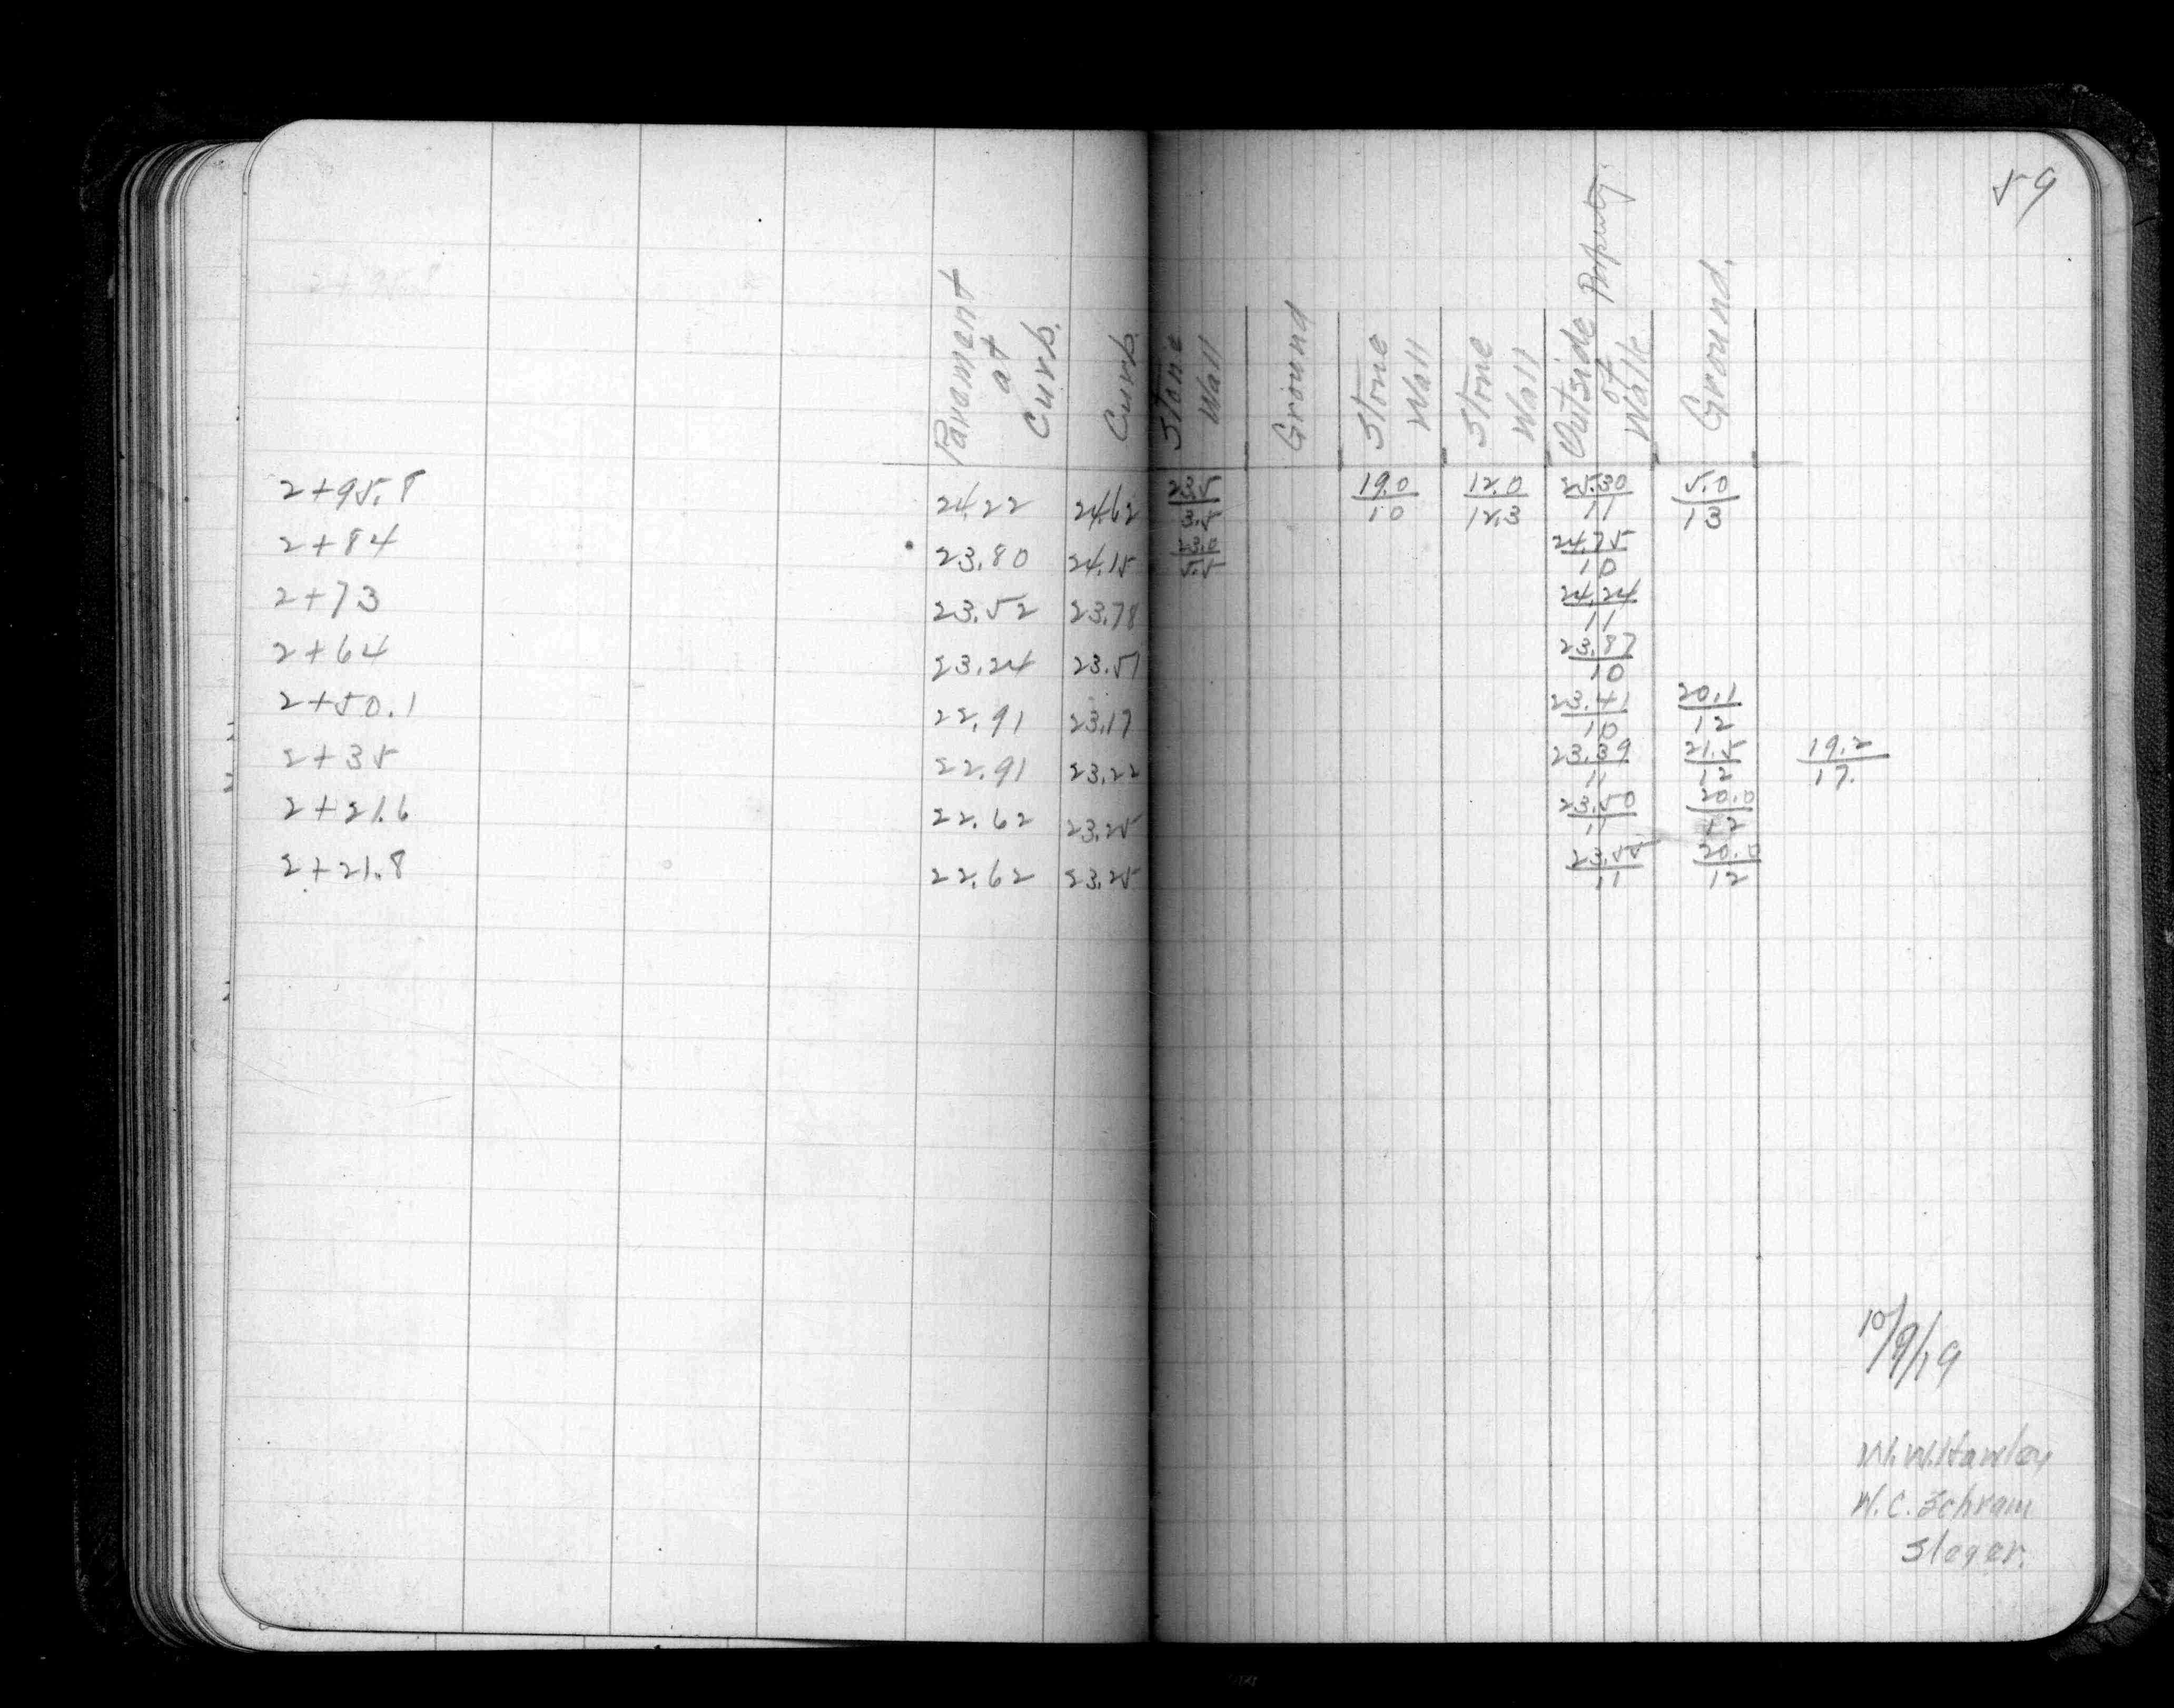 59
Pavement at Curb. Curb. Stone Wall Ground Stone Wall Stone Wall Outside of Walk Property. Ground.
2+95.8 24.22 24.62 23.5/3.5 19.0/10 12.0/12.3 25.30/11 5.0/13
2+84 23.80 24.15 23.0/5.5 24.75/10
2+73 23.52 23.78 24.24/11
2+64 23.24 23.51 23.87/10
2+50.1 22.91 23.17 23.41/10 20.1/12
2+35 22.91 23.22 23.39/11 21.5/12 19.2/17.
2+21.6 22.62 23.25 23.50/11 20.0/12
2+21.8 22.62 23.25 23.55/11 20.0/12
10/9/19
W. W. Hawley
W. C. Schram
Sleger.